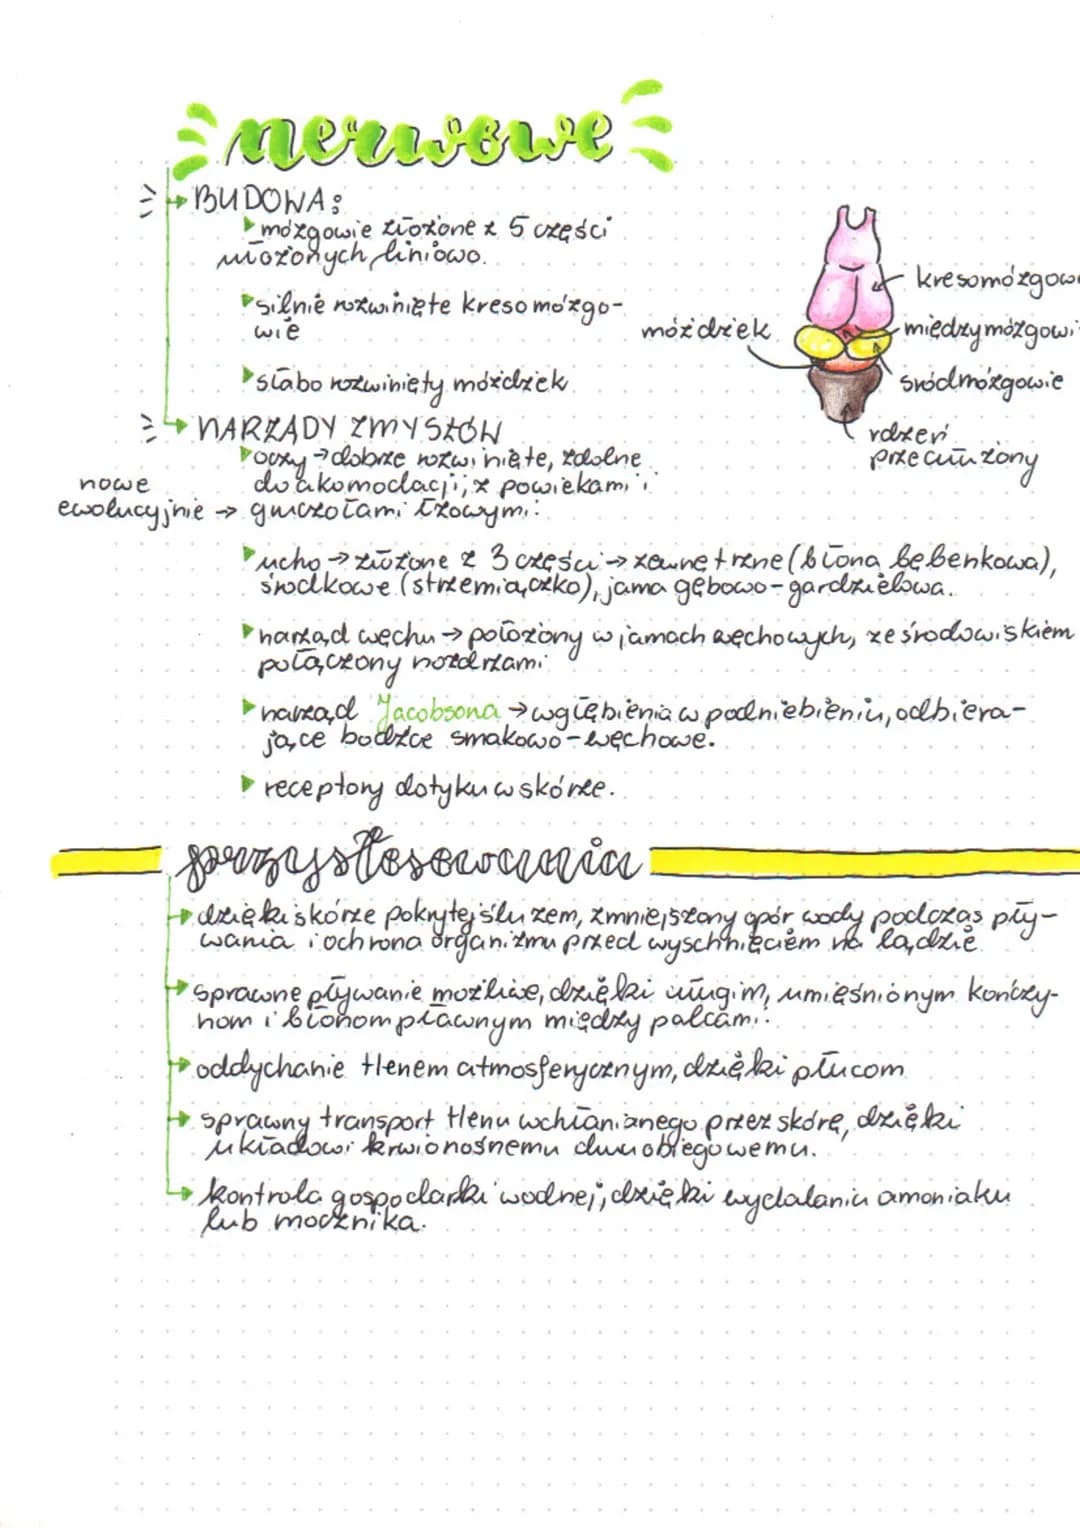 nerwowe
BUDOWA:
mózgowie złożone z 5 części
ułożonych liniowo.
silnie rozwinięte kresomózgo-
wie
słabo rozwinięty móżdżek
kresomózgowi
móżdżek
międzymózgowi
śródmózgowie
rdzeń
przedłużony
NARZĄDY ZMYSŁÓW
oczy → dobrze rozwinięte, zdolne
do akomodacji, z powiekami i
nowe
ewolucyjnie → gruczołami łzowymi.
ucho → złożone z 3 części → zewnętrzne (błona bębenkowa),
środkowe (strzemiączko), jama gębowo-gardzielowa.
narząd węchu → położony w jamach węchowych, ze środowiskiem
połączony nozdrzami
narząd Jacobsona → wgłębienia w podniebieniu, odbiera-
jące bodźce smakowo-węchowe.
receptory dotyku w skórze.
przystosowania
dzięki skórze pokrytej śluzem, zmniejszony opór wody podczas pły-
wania i ochrona organizmu przed wyschnięciem na lądzie
sprawne pływanie możliwe, dzięki długim, umięśnionym kończy-
nom i błonom pławnym między palcami.
oddychanie tlenem atmosferycznym, dzięki płucom
sprawny transport tlenu wchłanianego przez skórę, dzięki
układowi krwionośnemu dwuobiegowemu.
kontrola gospodarki wodnej, dzięki wydalaniu amoniaku
lub mocznika.